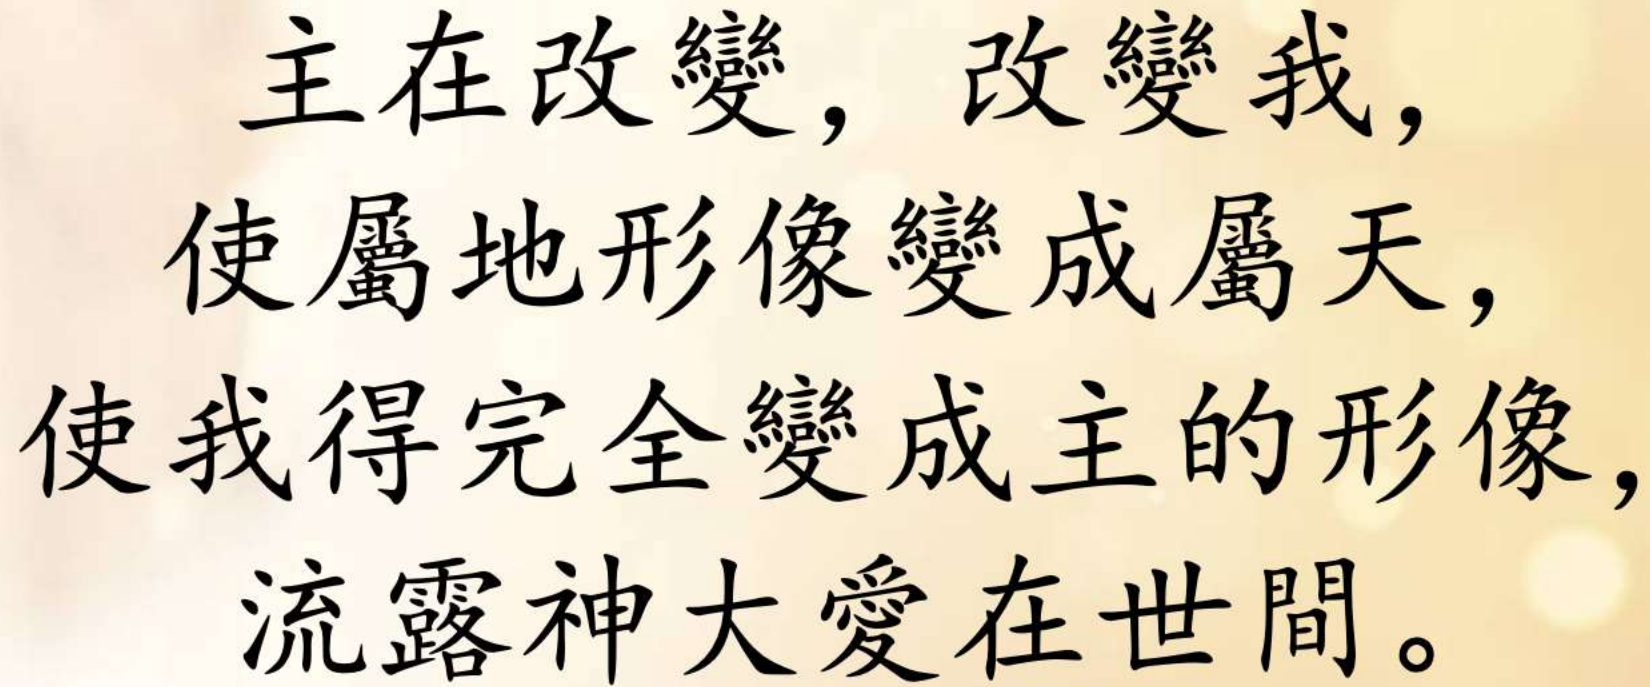 主在改變，改變我，
使屬地形像變成屬天，
使我得完全變成主的形像，
流露神大愛在世間。